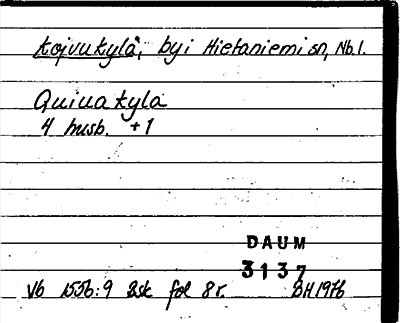 Koivukylä, by i Hietaniemi sn, Nb.l.
Quiuakyla
4 husb. +1
DAUM
3137
Vb 1556:9 Bsk fol 8 r. BH 1976